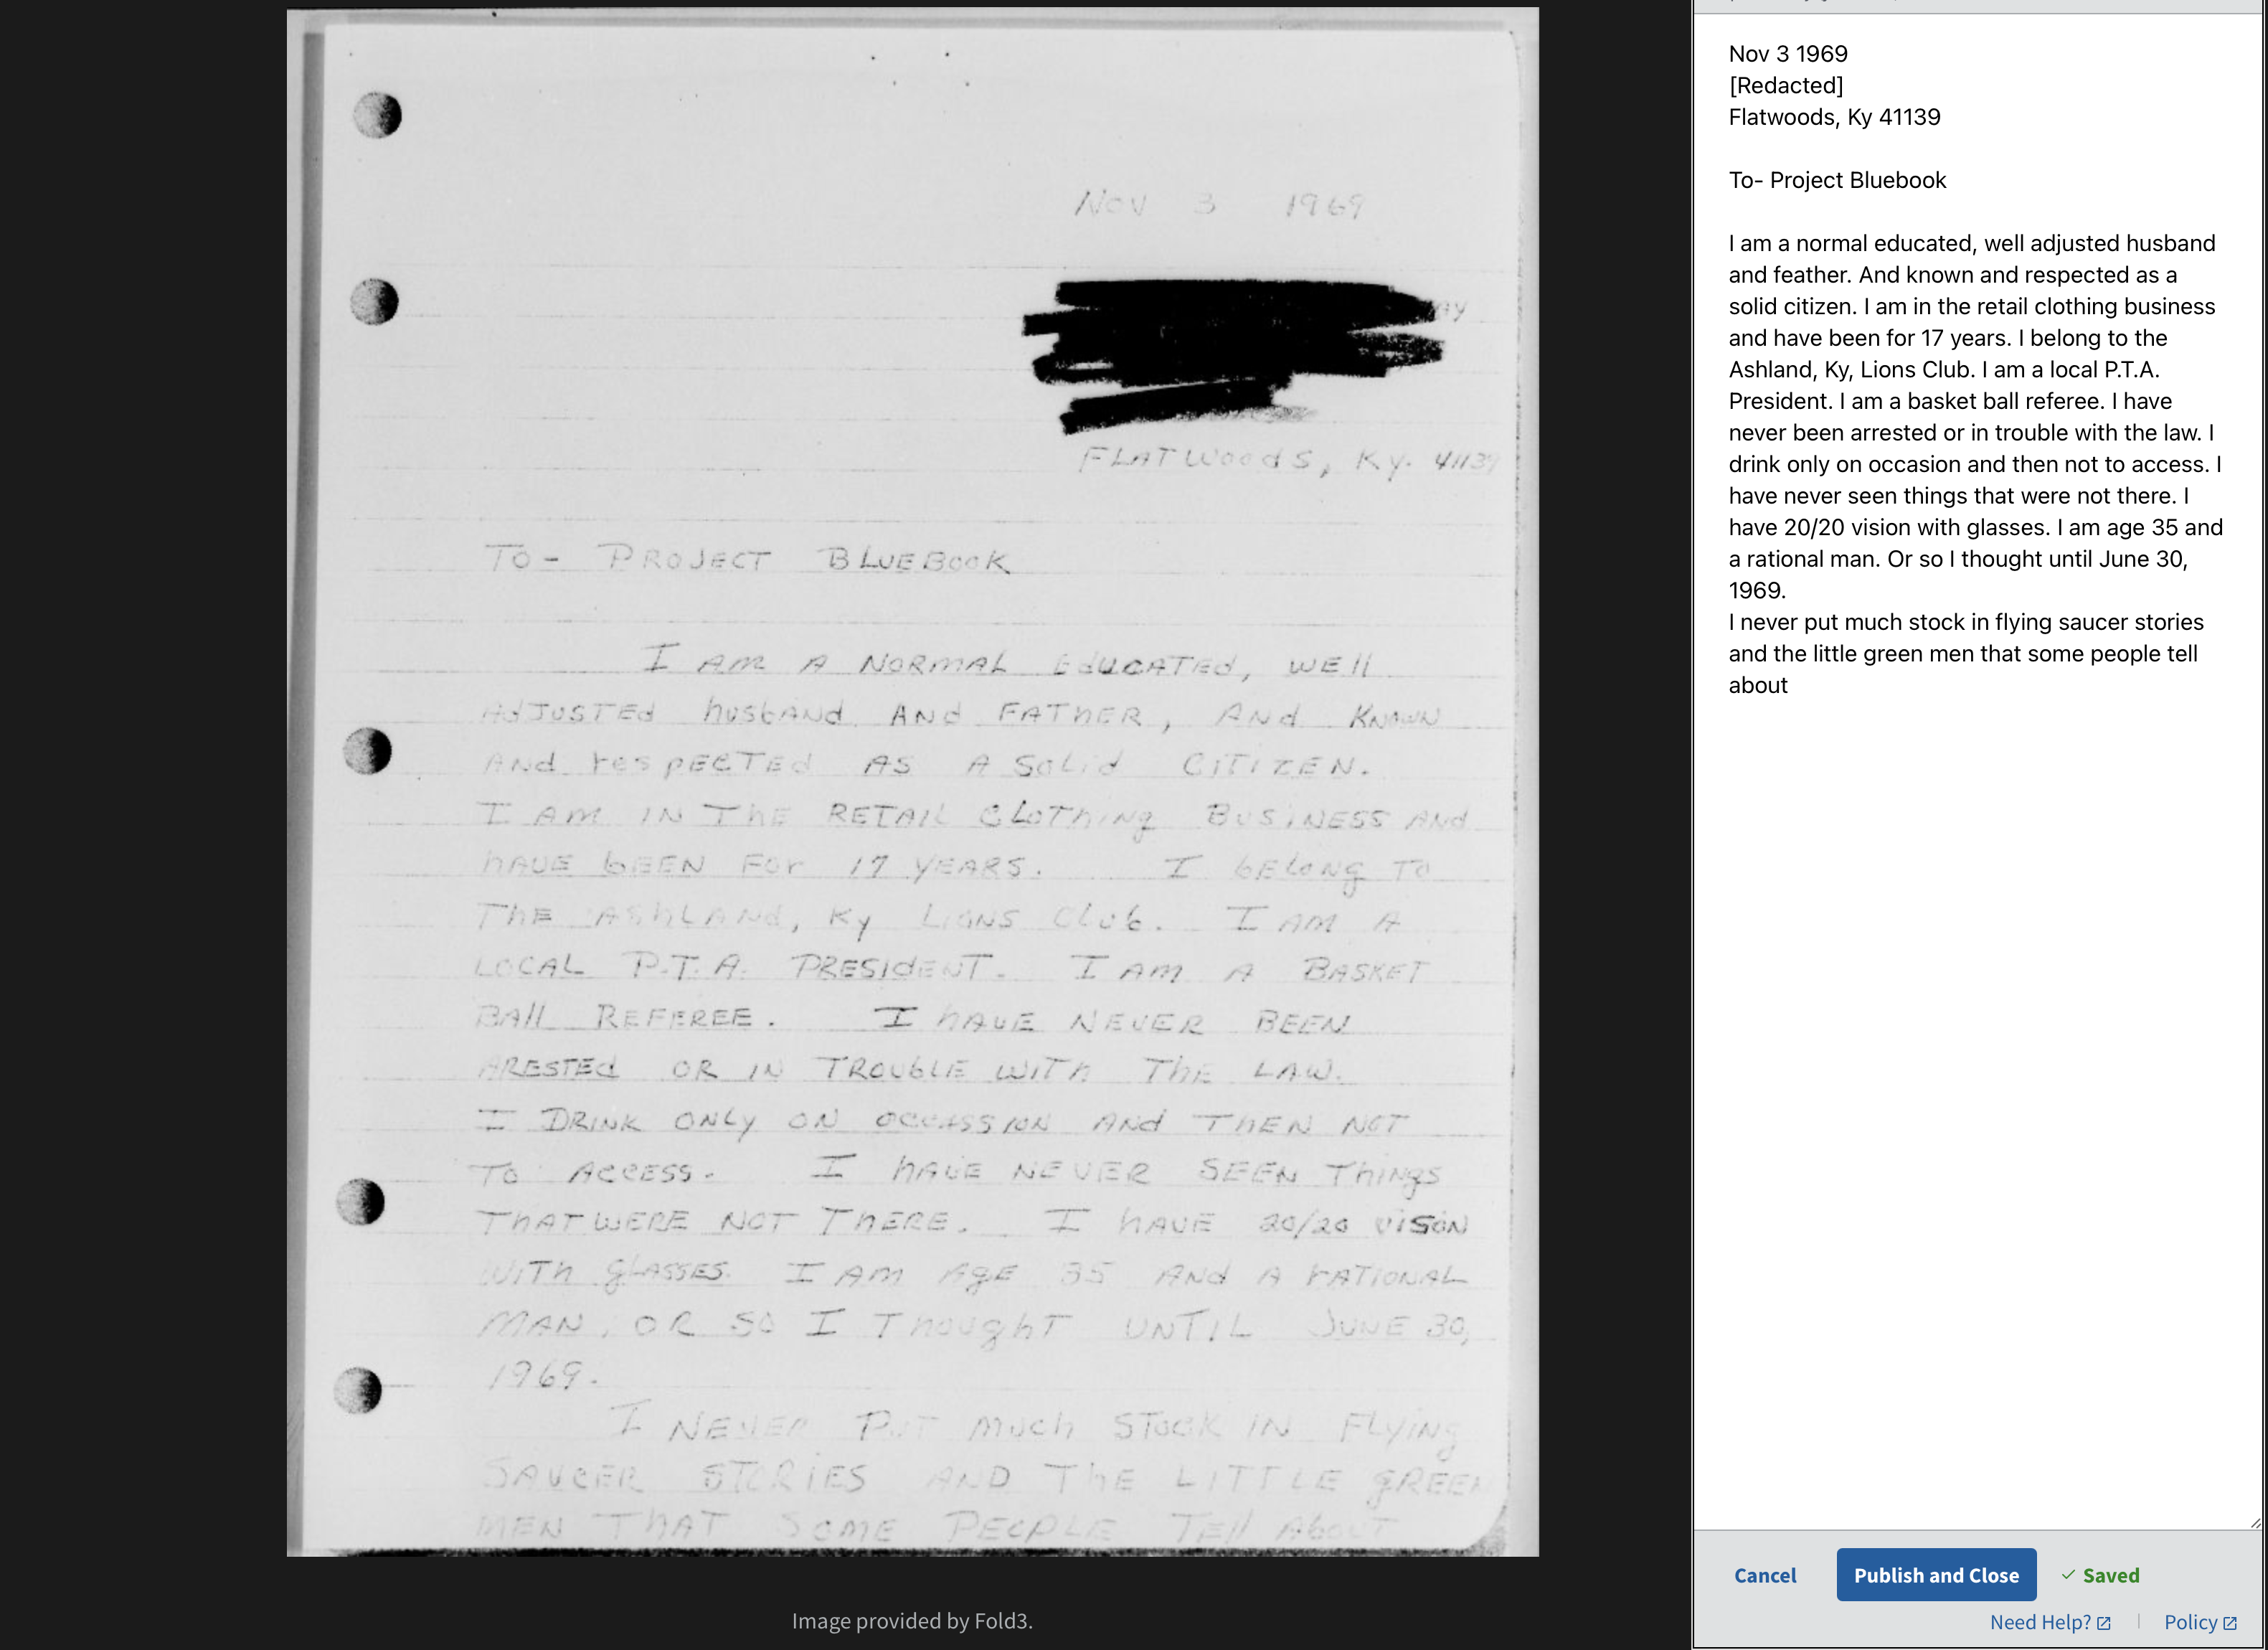 Nov 3 1969
Ay
FLATWoods, Ky. 41139
TO- PROJECT BLUEBOOK
I AM A NORMAL EducATEd, WEll
AdJUSTEd husbANd ANd FATHER, ANd KNOWN
ANd respECTEd AS A Solid CITIZEN.
I AM IN The RETAIL CLOThing BUSINESS ANd
hAVE bEEN For 17 YEARS. I bELong To
ThE AShLANd, Ky LIONS Club. I AM A
LOCAL P.T.A. PRESIdENT. I AM A BASKET
BAll REFEREE. I hAVE NEVER BEEN
ARESTEd OR IN TROUbLE WITh ThE LAW.
I DRINK ONLY ON OCCASSION ANd THEN NOT
TO ACCESS. I hAVE NEVER SEEN ThiNgS
ThAT WERE NOT ThERE. I hAVE 20/20 VISON
WITh gLASSES. I AM AgE 35 ANd A rATIONAL
MAN, OR SO I ThoughT UNTIL JUNE 30,
1969.
I NEVER PuT Much STOCK IN FLying
SAUCER STORIES AND ThE LITTLE gREEN
MEN ThAT SOME PEOPLE TEll AbouT
Image provided by Fold3.
Nov 3 1969
[Redacted]
Flatwoods, Ky 41139
To- Project Bluebook
I am a normal educated, well adjusted husband
and feather. And known and respected as a
solid citizen. I am in the retail clothing business
and have been for 17 years. I belong to the
Ashland, Ky, Lions Club. I am a local P.T.A.
President. I am a basket ball referee. I have
never been arrested or in trouble with the law. I
drink only on occasion and then not to access. I
have never seen things that were not there. I
have 20/20 vision with glasses. I am age 35 and
a rational man. Or so I thought until June 30,
1969.
I never put much stock in flying saucer stories
and the little green men that some people tell
about
Cancel
Publish and Close
Saved
Need Help?
Policy